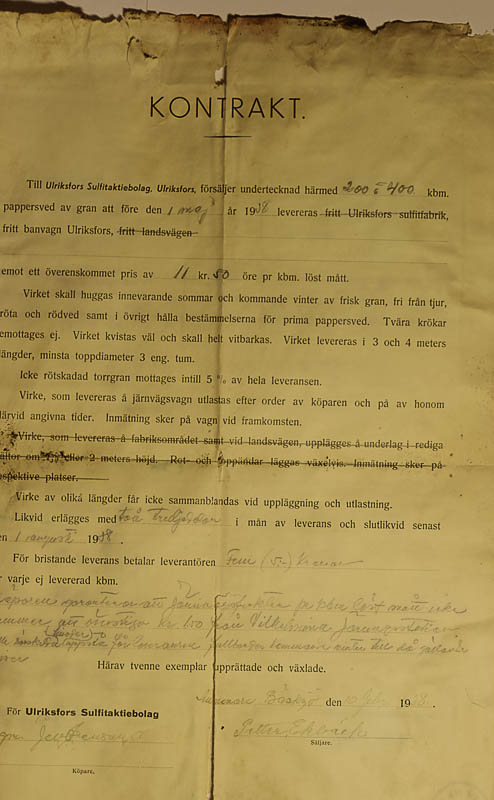 KONTRAKT.
Till Ulriksfors Sulfitaktiebolag, Ulriksfors, försäljer undertecknad härmed 200 à 400 kbm.
pappersved av gran att före den 1 maj år 1938 levereras fritt Ulriksfors sulfitfabrik,
fritt banvagn Ulriksfors, fritt landsvägen
emot ett överenskommet pris av 11 kr. 50 öre pr kbm. löst mått.
Virket skall huggas innevarande sommar och kommande vinter av frisk gran, fri från tjur,
röta och rödved samt i övrigt hålla bestämmelserna för prima pappersved. Tvära krökar
emottages ej. Virket kvistas väl och skall helt vitbarkas. Virket levereras i 3 och 4 meters
längder, minsta toppdiameter 3 eng. tum.
Icke rötskadad torrgran mottages intill 5 % av hela leveransen.
Virke, som levereras å järnvägsvagn utlastas efter order av köparen och på av honom
därvid angivna tider. Inmätning sker på vagn vid framkomsten.
Virke, som levereras å fabriksområdet samt vid landsvägen, upplägges å underlag i rediga
eller 2 meters höjd. Rot- och toppändar läggas växelvis. Inmätning sker på
spektive platser.
Virke av olika längder får icke sammanblandas vid uppläggning och utlastning.
Likvid erlägges med två tredjedelar i mån av leverans och slutlikvid senast
en 1 augusti 1938.
För bristande leverans betalar leverantören Fem (5:-) Kronor
varje ej levererad kbm.
att pr kbm löst mått
att kr. från Vilhelmina
för
Härav tvenne exemplar upprättade och växlade.
den 1938.
För Ulriksfors Sulfitaktiebolag
Petter Ekbäck
Säljare.
Köpare.